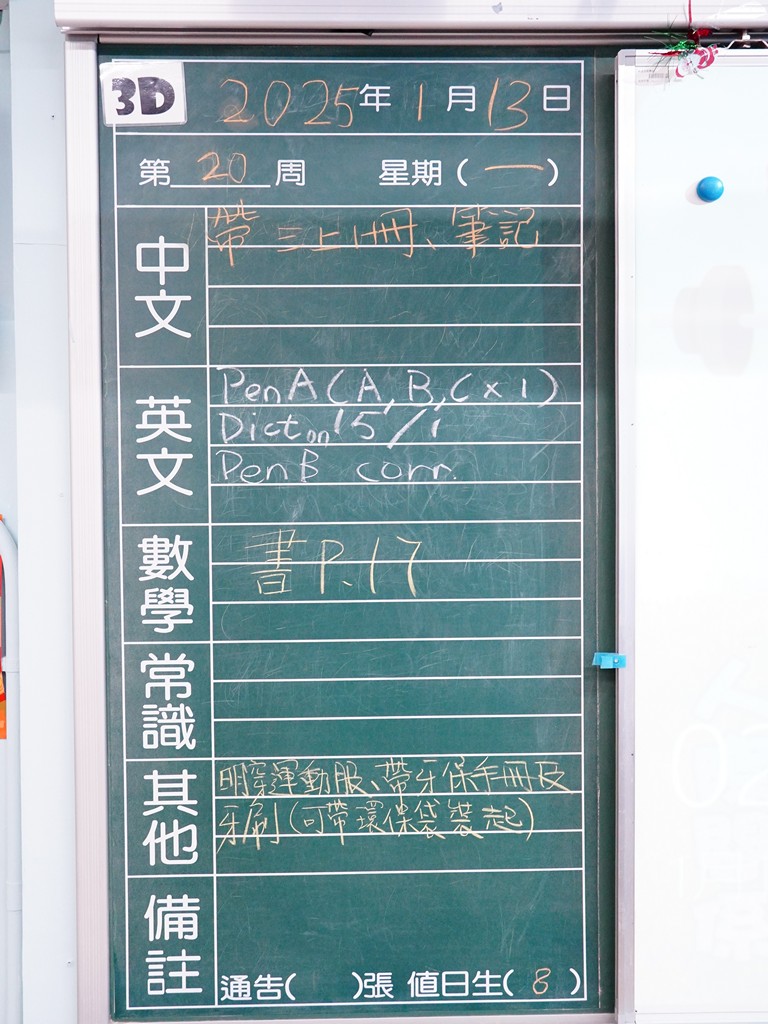 3D
2025年1月13日
第20周 星期(一)
中文
帶三上1冊、筆記
英文
PenA(A,B,C×1)
Dict on 15/1
PenB corr.
數學
書P.17
常識
其他
明穿運動服、帶牙保手冊及
牙刷(可帶環保袋裝起)
備註
通告( )張 值日生(8)